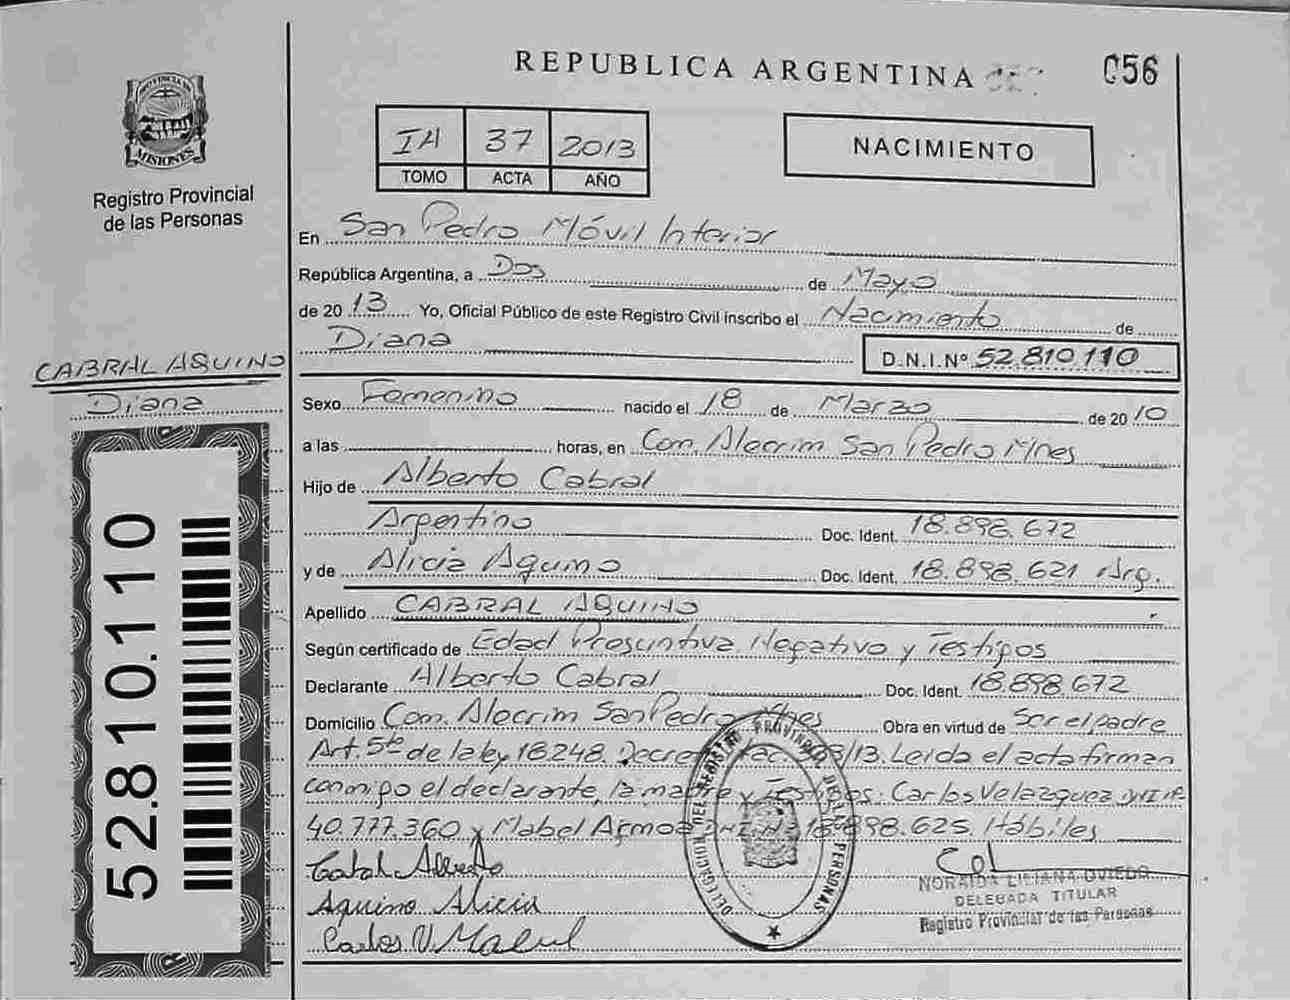 REPUBLICA ARGENTINA
056
PROVINCIA DE
MISIONES
Registro Provincial
de las Personas
IA 37 2013
TOMO ACTA AÑO
NACIMIENTO
En San Pedro Móvil Interior
República Argentina, a Dos de Mayo
de 2013 Yo, Oficial Público de este Registro Civil inscribo el Nacimiento de
Diana
D.N.I.Nº 52.810.110
CABRAL AQUINO
Diana
Sexo Femenino nacido el 18 de Marzo de 2010
a las horas, en Com. Alecrim San Pedro Mnes
Hijo de Alberto Cabral
Argentino Doc. Ident. 18.898.672
y de Alicia Aquino Doc. Ident. 18.898.621 Arg.
Apellido CABRAL AQUINO
Según certificado de Edad Presuntiva Negativo y Testigos
Declarante Alberto Cabral Doc. Ident. 18.898.672
Domicilio Com. Alecrim San Pedro Mnes Obra en virtud de Ser el padre
Art. 5to de la ley 18.248. Decreto Nac. /13. Leida el acta firman
conmigo el declarante, la madre y Testigos: Carlos Velazquez DNI Nº
40.777.360 y Mabel Acmoa D.N.I.Nº 18.898.625. Hábiles
Cabral Alberto
Aquino Alicia
Carlos V. Mabel
52.810.110
DELEGACION DEL REGISTRO PROVINCIAL DE LAS PERSONAS
NORAIDA LILIANA OVIEDO
DELEGADA TITULAR
Registro Provincial de las Personas